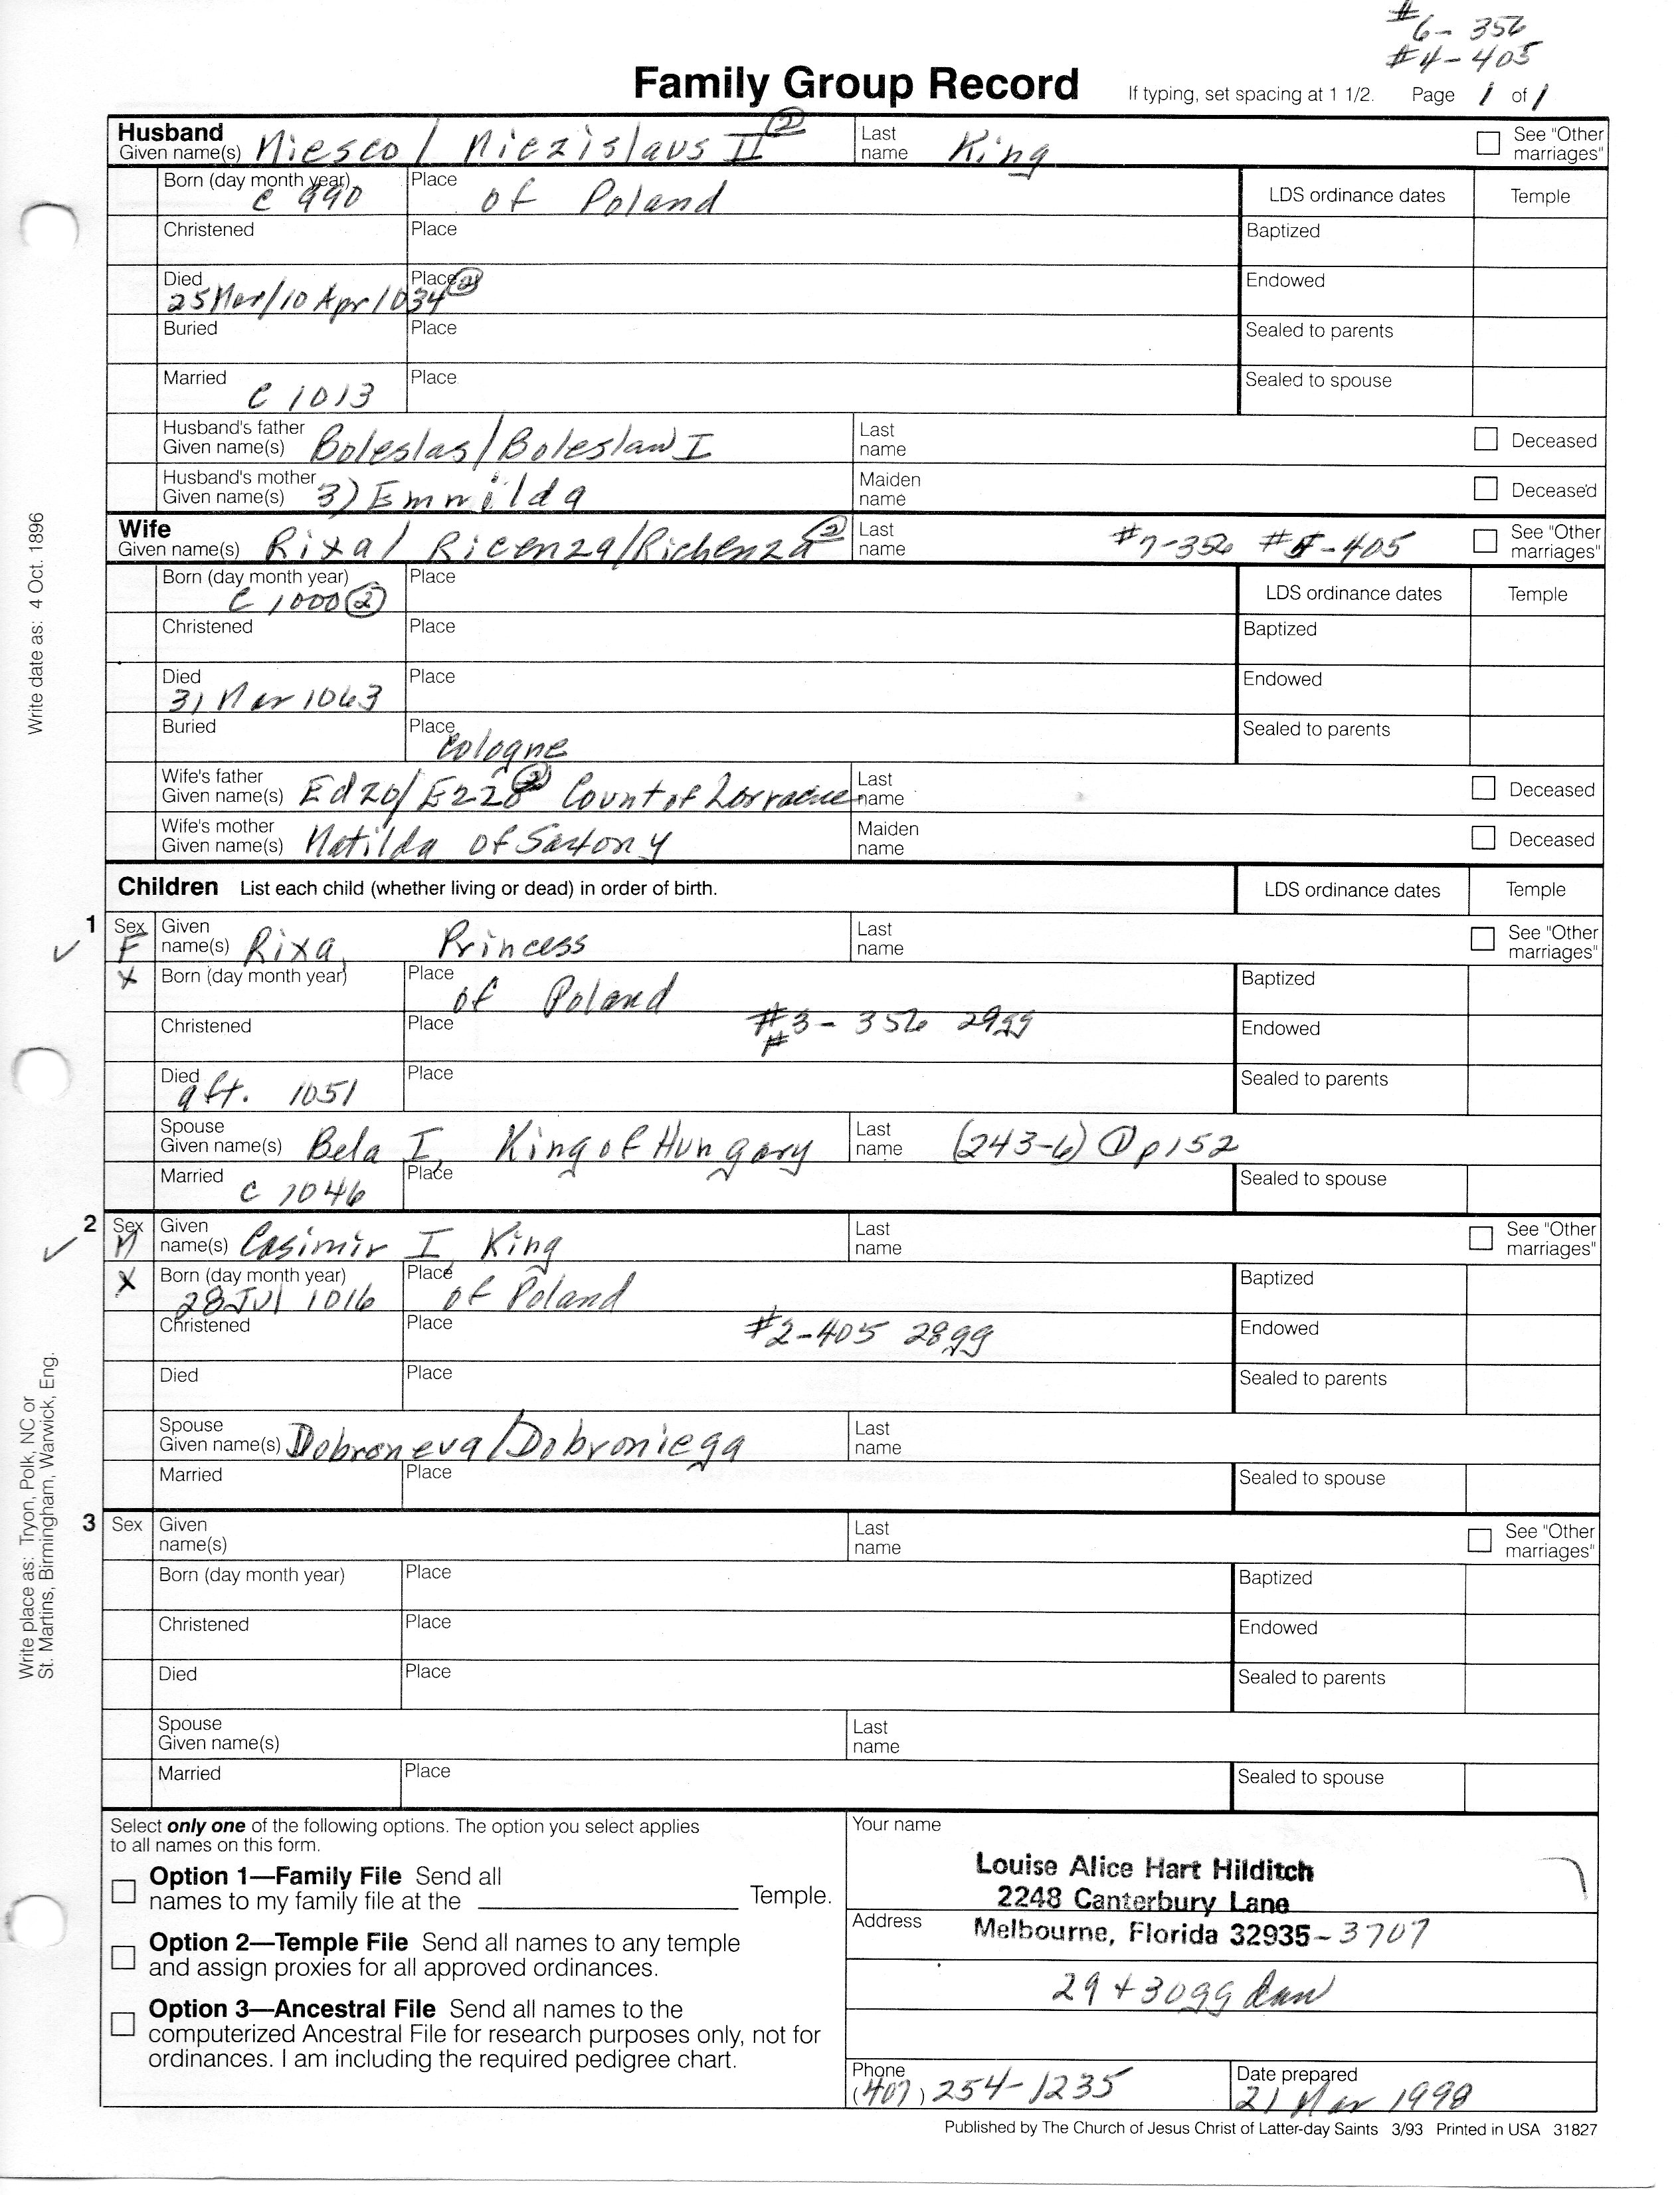 #6- 356
#4-405
Family Group Record
If typing, set spacing at 1 1/2. Page 1 of 1
Husband
Given name(s) Miesco / Miezislaus II ② Last name King See "Other marriages"
Born (day month year) c 990 Place of Poland LDS ordinance dates Temple
Christened Place Baptized
Died 25 Mar/10 Apr 1034 ② Place Endowed
Buried Place Sealed to parents
Married c 1013 Place Sealed to spouse
Husband's father Given name(s) Boleslas/Boleslaw I Last name Deceased
Husband's mother Given name(s) 3) Emnilda Maiden name Deceased
Wife
Given name(s) Rixa/ Ricenza/Richenza ② Last name #7-356 #5-405 See "Other marriages"
Born (day month year) c 1000 ② Place LDS ordinance dates Temple
Christened Place Baptized
Died 31 Mar 1063 Place Endowed
Buried Place Cologne Sealed to parents
Wife's father Given name(s) Edzo/Ezzo ② Count of Lorraine Last name Deceased
Wife's mother Given name(s) Matilda of Saxony Maiden name Deceased
Children List each child (whether living or dead) in order of birth. LDS ordinance dates Temple
1 Sex F Given name(s) Rixa, Princess Last name See "Other marriages"
✓ X Born (day month year) Place of Poland Baptized
Christened Place #3-356 29gg Endowed
#
Died aft. 1051 Place Sealed to parents
Spouse Given name(s) Bela I, King of Hungary Last name (243-6) ① p152
Married c 1046 Place Sealed to spouse
2 Sex M Given name(s) Casimir I King Last name See "Other marriages"
✓ X Born (day month year) 28 Jul 1016 Place of Poland Baptized
Christened Place #2-405 28gg Endowed
Died Place Sealed to parents
Spouse Given name(s) Dobroneva/Dobroniega Last name
Married Place Sealed to spouse
3 Sex Given name(s) Last name See "Other marriages"
Born (day month year) Place Baptized
Christened Place Endowed
Died Place Sealed to parents
Spouse Given name(s) Last name
Married Place Sealed to spouse
Write date as: 4 Oct. 1896
Write place as: Tryon, Polk, NC or
St. Martins, Birmingham, Warwick, Eng.
Select only one of the following options. The option you select applies
to all names on this form.
Option 1—Family File Send all
names to my family file at the Temple.
Option 2—Temple File Send all names to any temple
and assign proxies for all approved ordinances.
Option 3—Ancestral File Send all names to the
computerized Ancestral File for research purposes only, not for
ordinances. I am including the required pedigree chart.
Your name
Louise Alice Hart Hilditch
2248 Canterbury Lane
Address Melbourne, Florida 32935-3707
29 + 30gg dau
Phone (407) 254-1235 Date prepared 21 Mar 1998
Published by The Church of Jesus Christ of Latter-day Saints 3/93 Printed in USA 31827